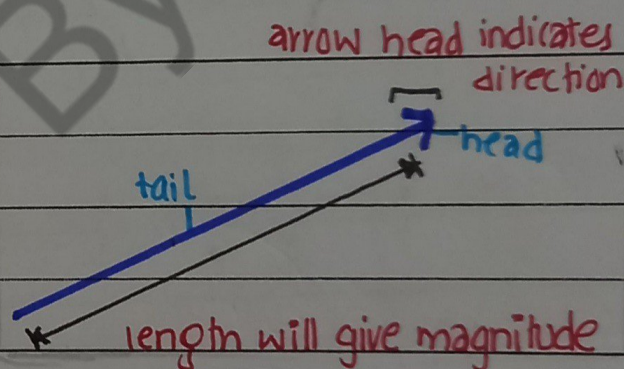 By
arrow head indicates
direction
head
tail
length will give magnitude